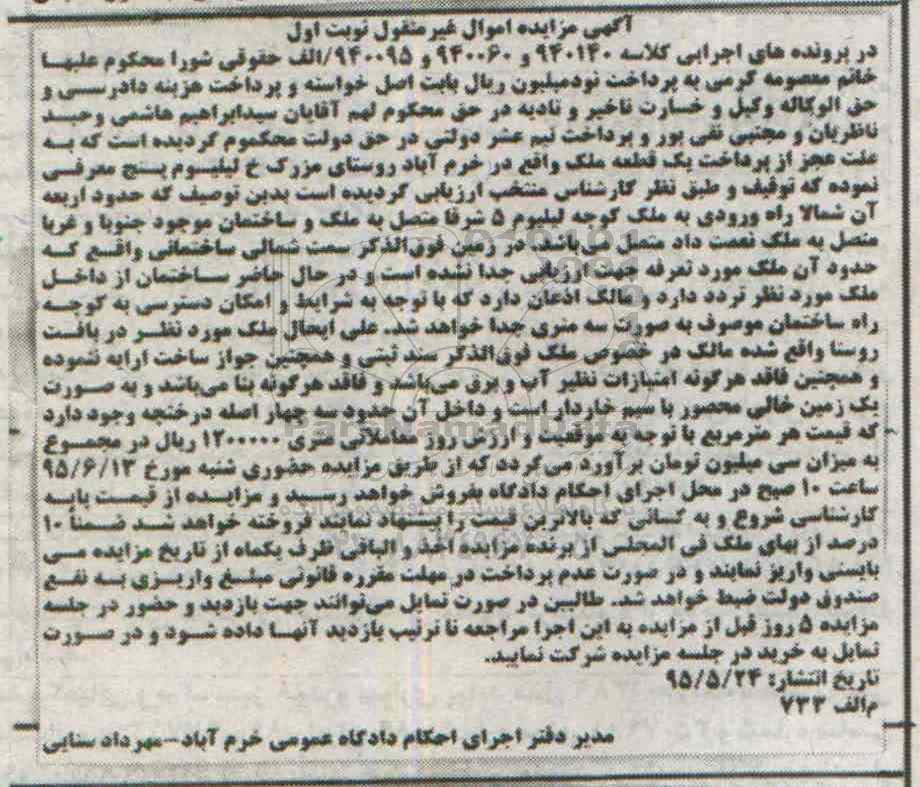 آگهی مزایده اموال غیرمنقول نوبت اول
در پرونده های اجرایی کلاسه ۹۴۰۱۴۰ و ۹۴۰۰۶۰ و ۹۴۰۰۹۵/الف حقوقی شورا محکوم علیها
خانم معصومه گرمی به پرداخت نودمیلیون ریال بابت اصل خواسته و پرداخت هزینه دادرسی و
حق الوکاله وکیل و خسارت تاخیر و تادیه در حق محکوم لهم آقایان سیدابراهیم هاشمی وحید
ناظریان و مجتبی نقی پور و پرداخت نیم عشر دولتی در حق دولت محکموم گردیده است که به
علت عجز از پرداخت یک قطعه ملک واقع در خرم آباد روستای مزرک خ لیلیوم پنج معرفی
نموده که توقیف و طبق نظر کارشناس منتخب ارزیابی گردیده است بدین توصیف که حدود اربعه
آن شمالا راه ورودی به ملک کوچه لیلیوم ۵ شرقا متصل به ملک و ساختمان موجود جنوبا و غربا
متصل به ملک نعمت داد متصل می‌باشد، در زمین فوق‌الذکر سمت شمالی ساختمانی واقع که
حدود آن ملک مورد تعرفه جهت ارزیابی جدا نشده است و در حال حاضر ساختمان از داخل
ملک مورد نظر تردد دارد و مالک اذعان دارد که با توجه به شرایط و امکان دسترسی به کوچه
راه ساختمان موصوف به صورت سه متری جدا خواهد شد. علی ایحال ملک مورد نظر در بافت
روستا واقع شده مالک در خصوص ملک فوق‌الذکر سند ثبتی و همچنین جواز ساخت ارایه ننموده
و همچنین فاقد هرگونه امتیازات نظیر آب و برق می‌باشد و فاقد هرگونه بنا می‌باشد و به صورت
یک زمین خالی محصور با سیم خاردار است و داخل آن حدود سه چهار اصله درختچه وجود دارد
که قیمت هر مترمربع با توجه به موقعیت و ارزش روز معاملاتی متری ۱۲۰۰۰۰۰ ریال در مجموع
به میزان سی میلیون تومان برآورد می‌گردد که از طریق مزایده حضوری شنبه مورخ ۹۵/۶/۱۳
ساعت ۱۰ صبح در محل اجرای احکام دادگاه بفروش خواهد رسید و مزایده از قیمت پایه
کارشناسی شروع و به کسانی که بالاترین قیمت را پیشنهاد نمایند فروخته خواهد شد ضمناً ۱۰
درصد از بهای ملک فی المجلس از برنده مزایده اخذ و الباقی ظرف یکماه از تاریخ مزایده می
بایستی واریز نمایند و در صورت عدم پرداخت در مهلت مقرره قانونی مبلغ واریزی به نفع
صندوق دولت ضبط خواهد شد. طالبین در صورت تمایل می‌توانند جهت بازدید و حضور در جلسه
مزایده ۵ روز قبل از مزایده به این اجرا مراجعه تا ترتیب بازدید آنها داده شود و در صورت
تمایل به خرید در جلسه مزایده شرکت نمایید.
تاریخ انتشار: ۹۵/۵/۲۴
م‌الف ۷۳۳
مدیر دفتر اجرای احکام دادگاه عمومی خرم آباد-مهرداد سنایی
ParsNamadData